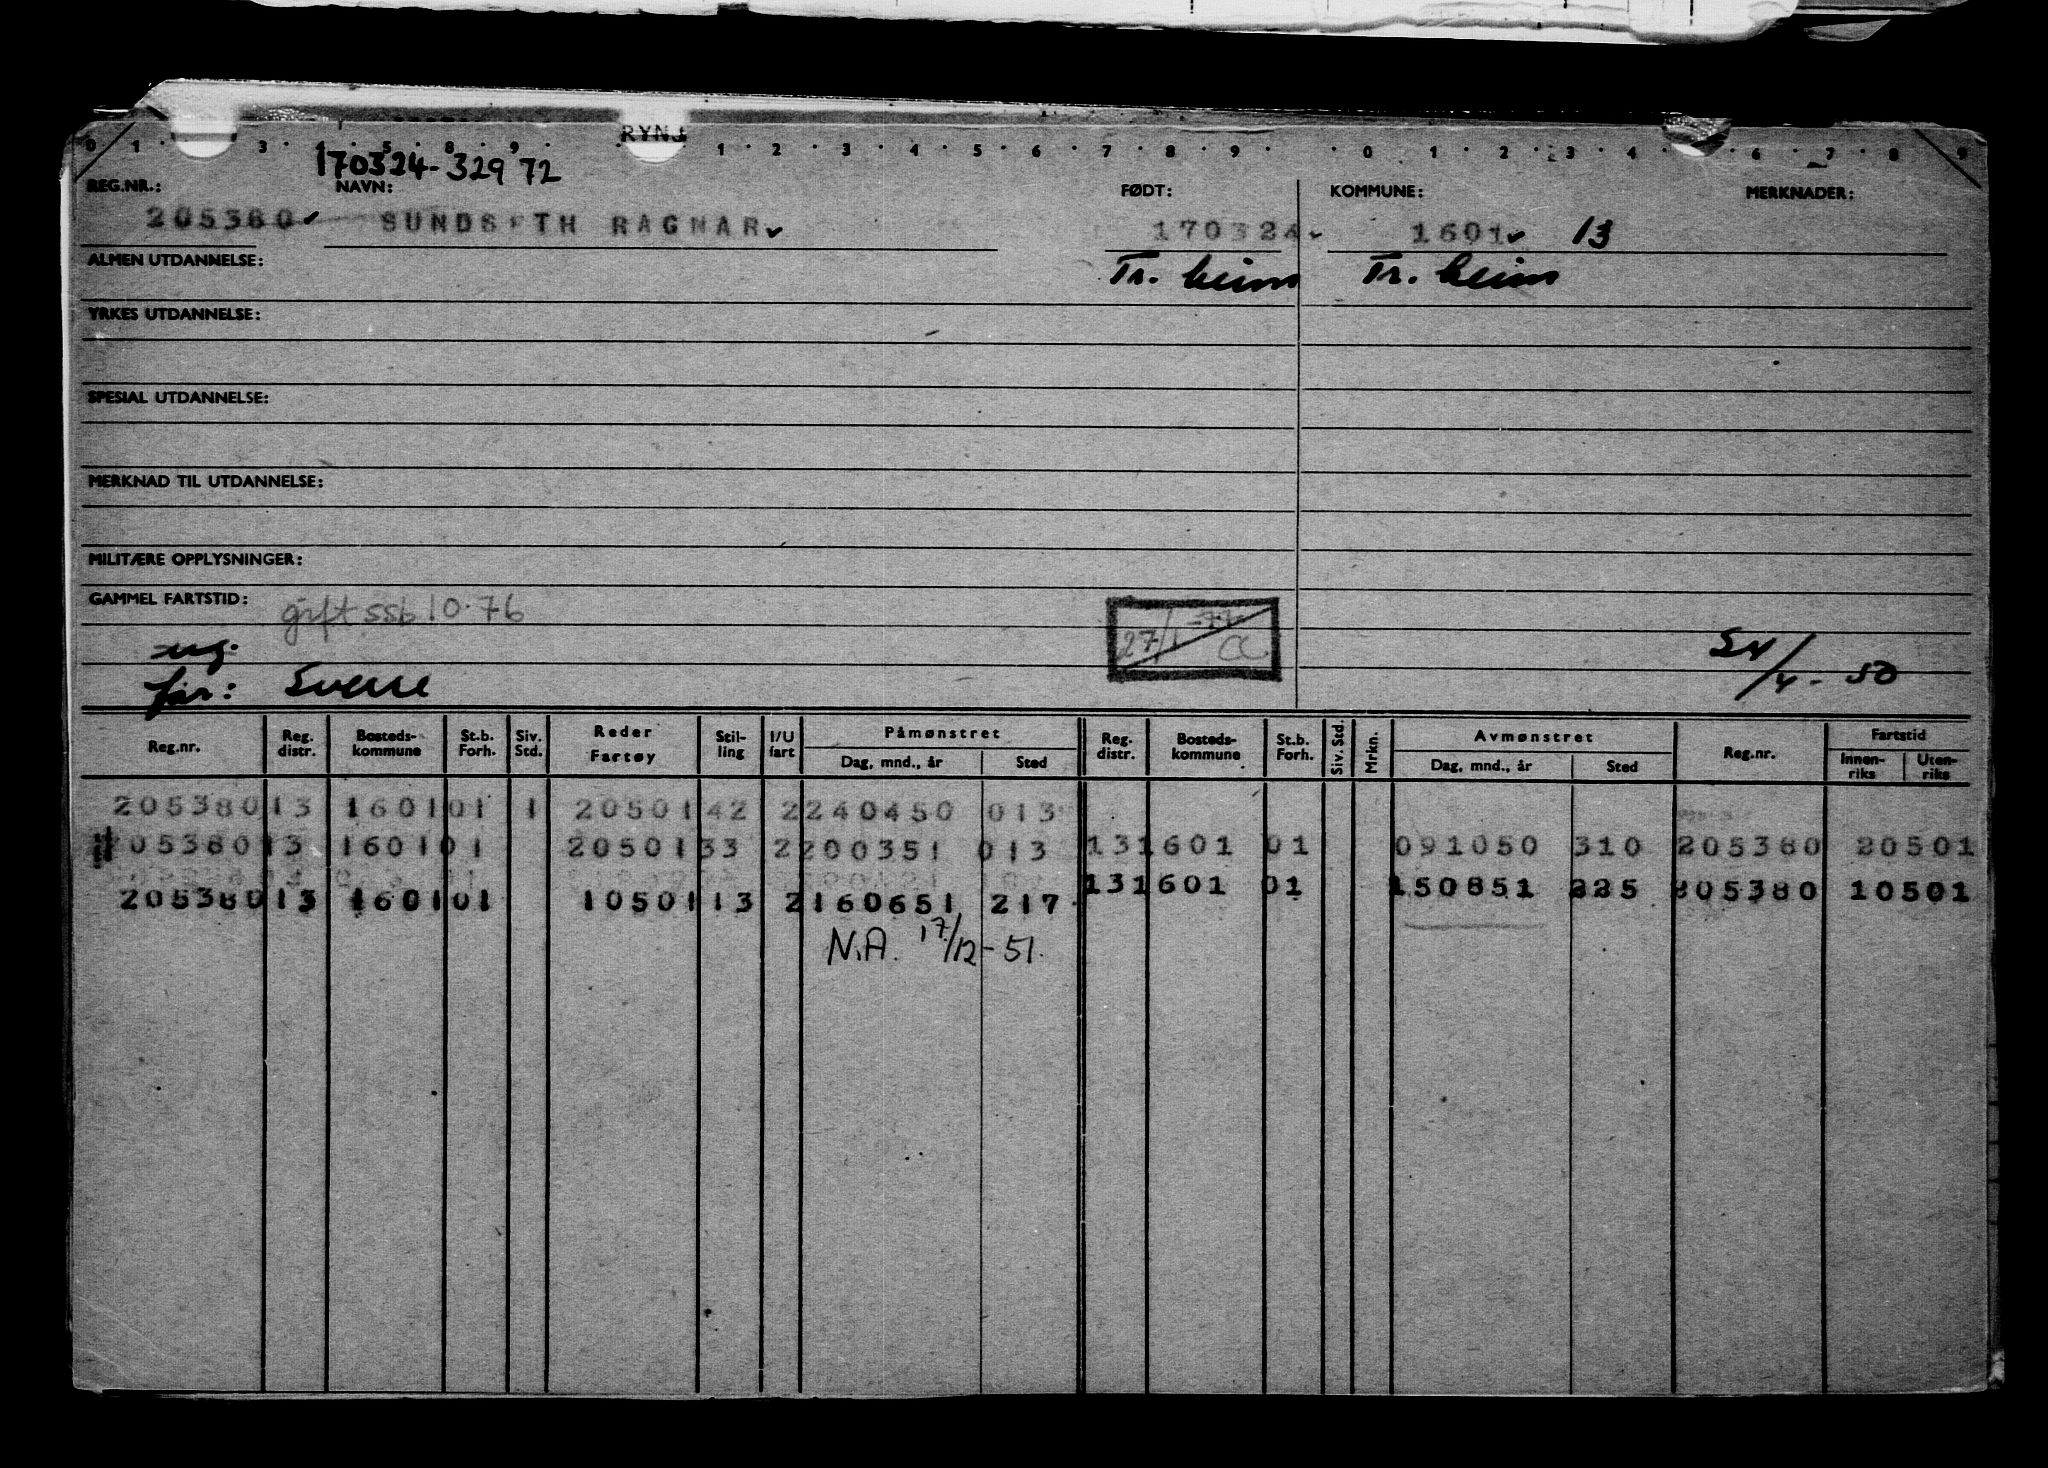 RYNJ
0 1 3 5 8 9 1 2 3 4 5 6 7 8 9 0 1 2 3 4 6 7 8 9
170324-32972
REG.NR.: NAVN: FØDT: KOMMUNE: MERKNADER:
205380✓ SUNDSETH RAGNAR✓ 170324✓ 1601✓ 13
ALMEN UTDANNELSE: Tr. heim Tr. heim
YRKES UTDANNELSE:
SPESIAL UTDANNELSE:
MERKNAD TIL UTDANNELSE:
MILITÆRE OPPLYSNINGER:
GAMMEL FARTSTID: gift ssb 10.76
27/1-77 CC
ug.
far: Sverre
24/4-50
Reg.nr. Reg. distr. Bosteds-kommune St.b. Forh. Siv. Std. Reder Fartøy Stil-ling I/U fart Påmønstret Dag, mnd., år Sted Reg. distr. Bosteds-kommune St.b. Forh. Siv. Std. Mrkn. Avmønstret Dag, mnd., år Sted Reg.nr. Fartstid Innen-riks Uten-riks
205380 13 1601 01 1 20501 42 2 240450 013
205380 13 1601 01 20501 33 2 200351 013 13 1601 01 091050 310 205380 20501
205380 13 1601 01 10501 13 2 160651 217 13 1601 01 150851 225 205380 10501
N.A. 17/12-51.